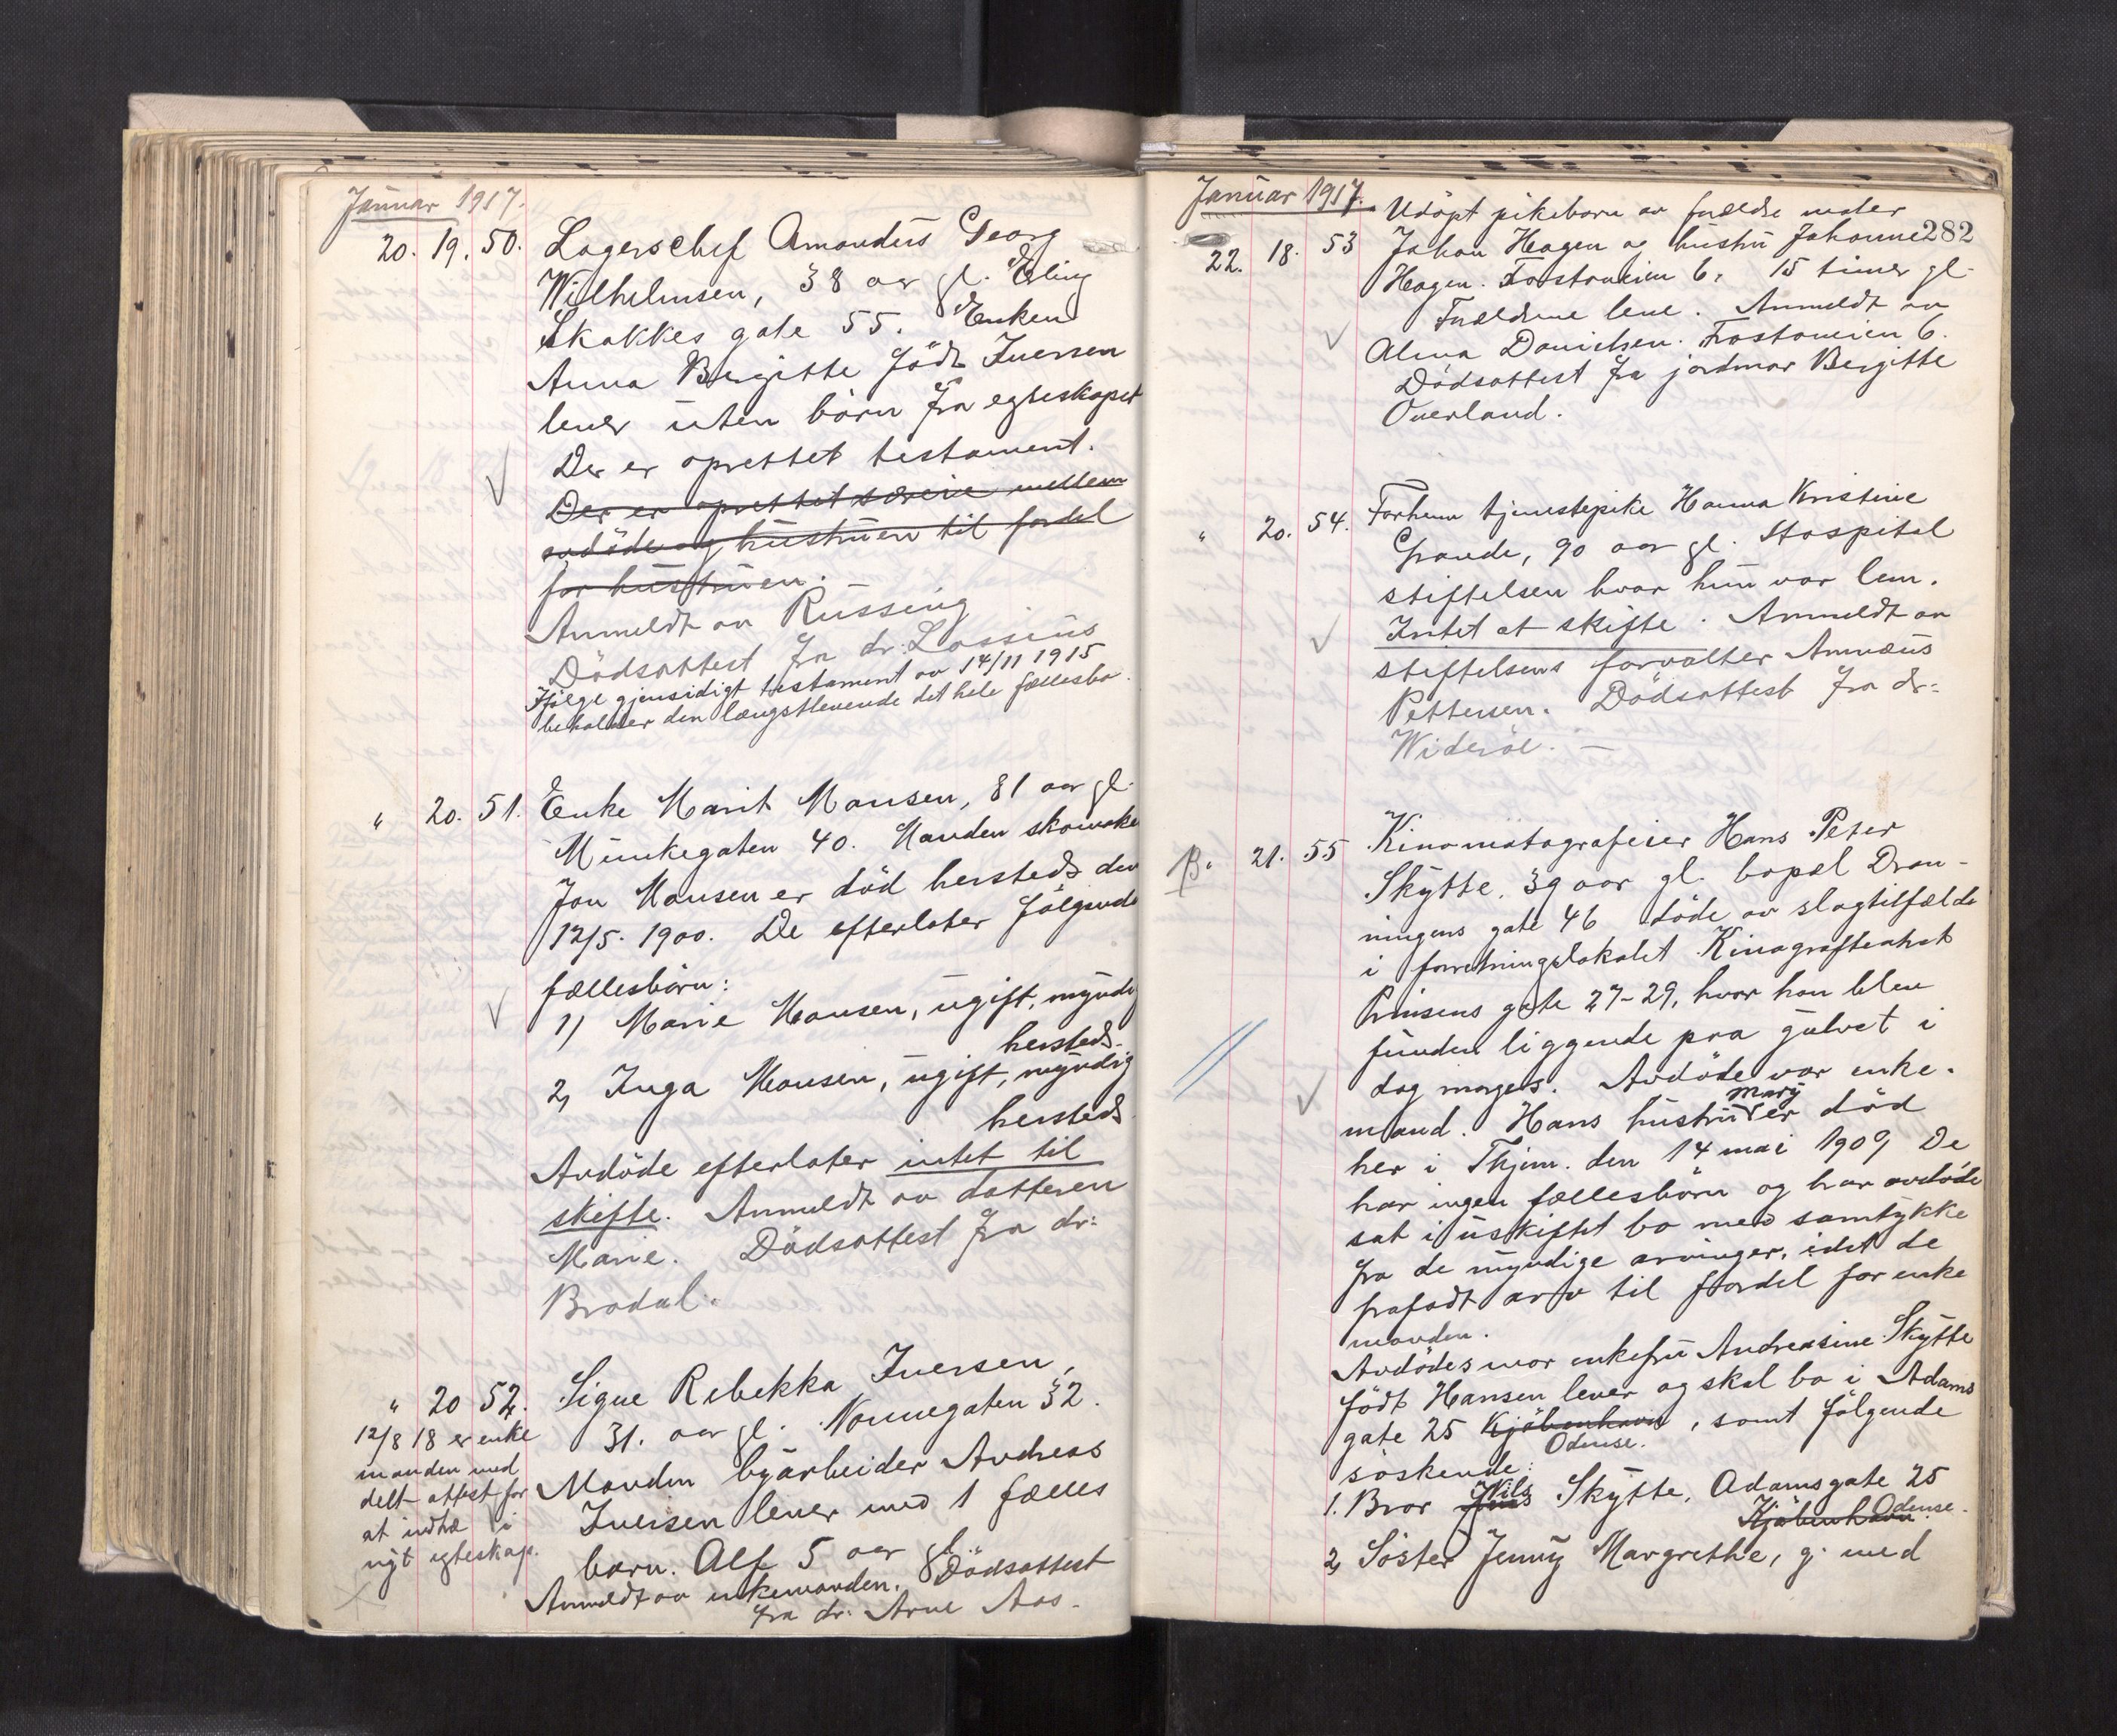 Januar 1917.
20. 19. 50. Lagerschef Amandus Georg
Wilhelmsen, 38 aar gl. Erling
Skakkes gate 55. Enken
Anna Bergitte födt Iversen
lever uten börn fra egteskapet
Der er oprettet testament.
Der er oprettet særeie mellem
avdöde og hustruen til fordel
for hustruen.
Anmeldt av Russing
Dödsattest fra dr: Lossius
Ifölge gjensidigt testament av 14/11 1915
beholder den længstlevende det hele fællesbo.
" 20. 51. Enke Marit Mansen, 81 aar gl.
Munkegaten 40. Manden skomaker
Jon Mansen er död hersteds den
12/5. 1900. De efterlater fölgende
fællesbörn:
1) Marie Mansen, ugift, myndig
hersteds.
2, Inga Mansen, ugift, myndig
hersteds
Avdöde efterlater intet til
skifte. Anmeldt av datteren
Marie. Dödsattest fra dr:
Brodal.
" 20 52. Signe Rebekka Iversen,
31. aar gl. Nonnegaten 32.
Manden byarbeider Andreas
Iversen lever med 1 fælles
barn. Alf 5 aar gl.
Anmeldt av enkemanden. Dödsattest
fra dr: Arne Aas.
12/8 18 er enke
manden med
delt attest for
at indtræ i
nyt egteskap.
Januar 1917.
282
Udöpt pikebarn av forældre maler
22. 18. 53 Johan Hagen og hustru Johanne
Hagen. Frostaveien 6, 15 timer gl.
Forældrene leve. Anmeldt av
Alma Danielsen. Frostaveien 6.
Dödsattest fra jordmor Bergitte
Overland.
" 20. 54. Forhenv tjenestepike Hanna Kristine
Grande, 90 aar gl. Hospital
stiftelsen hvor hun var lem.
Intet at skifte. Anmeldt av
stiftelsens forvalter Amnæus
Pettersen. Dödsattest fra dr:
Wideröe. —
B. 21. 55 Kinomatografeier Hans Peter
Skytte, 39 aar gl. bopæl Dron-
ningens gate 46 döde av slagtilfælde
i forretningslokalet Kinografteatret
Prinsens gate 27-29, hvor han blev
funden liggende paa gulvet i
dag morges. Avdöde var enke-
mand. Hans hustru Mary er död
her i Thjem. den 14 mai 1909 De
har ingen fællesbörn og har avdöde
sat i uskiftet bo med samtykke
fra de myndige arvinger, idet de
frafaldt arv til fordel for enke
manden.
Avdödes mor enkefru Andreasine Skytte
födt Hansen lever og skal bo i Adams
gate 25 Kjöbenhavn, samt fölgende
Odense.
söskende:
1. Bror Jens Nils Skytte, Adamsgate 25
Kjöbenhavn Odense.
2, Söster Jenny Margrethe, g. med